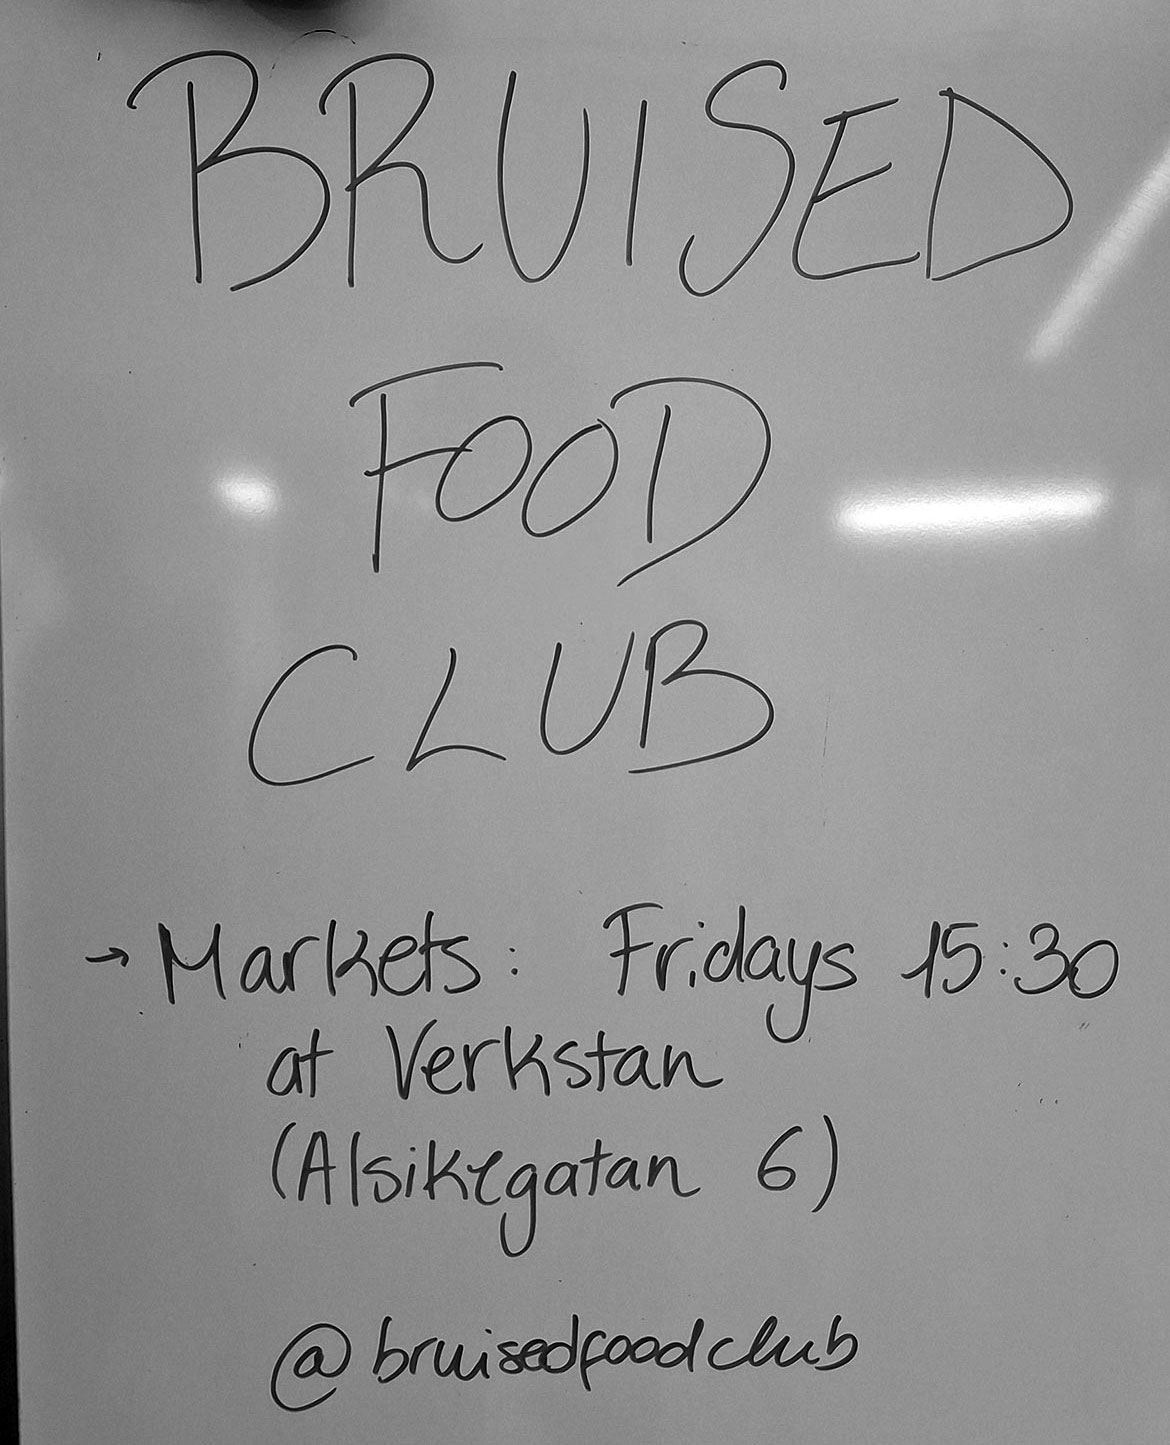 BRUISED
FOOD
CLUB
→ Markets: Fridays 15:30
at Verkstan
(Alsikegatan 6)
@bruisedfoodclub